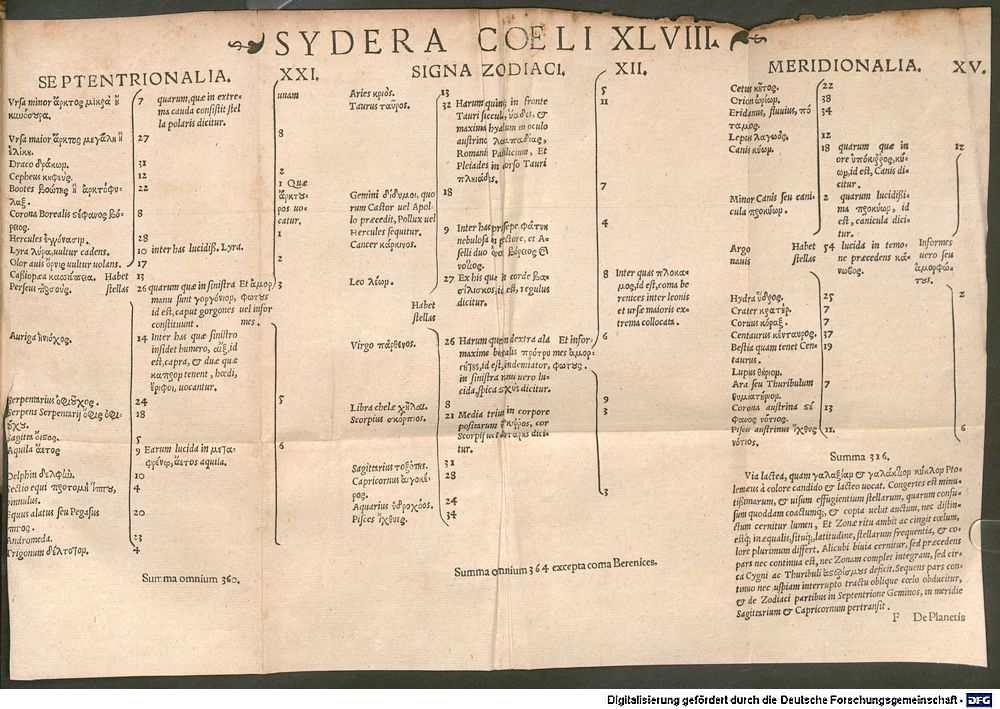 SYDERA COELI XLVIII.
SEPTENTRIONALIA. XXI.
Vrsa minor ἄρκτος μικρὰ ἢ 7 quarum, quæ in extre- unam
κυνόσυρα. ma cauda consistit stel
la polaris dicitur.
Vrsa maior ἄρκτος μεγάλη ἢ 27 8
ἑλίκη.
Draco δράκων. 31
Cepheus κηφεύς. 12 2
Bootes βοώτης ἢ ἀρκτόφυ- 22 1 Quæ
λαξ. ἄρκτυ-
ρος uo-
catur.
Corona Borealis στέφανος βό- 8
ρειος. 1
Hercules ἐγγόνασιν. 28
Lyra λύρα, uultur cadens. 10 inter has lucidiss. Lyra.
Olor auis ὄρνις uultur uolans. 17 2
Caßiopæa κασσιέπεια. Habet 13
Perseus περσεύς. stellas 26 quarum quæ in sinistra Et ἀμορ 3
manu sunt γοργόνιον, φωτυς
id est, caput gorgones uel infor
constituunt. mes.
Auriga ἡνίοχος. 14 Inter has quæ sinistro
insidet humero, αἲξ, id
est, capra, & duæ quæ
καπρον tenent, hœdi,
ἔριφοι, uocantur.
Serpentarius ὀφιῦχος. 24 5
Serpens Serpentarij ὄφις ὀφι- 18
ύχυ.
Sagitta ὄϊστος. 5
Aquila ἀετος 9 Earum lucida in μετα- 6
φρένῳ, ἄετος aquila.
Delphin δελφὼν. 10
Sectio equi προτομὴ ἵππυ, 4
hinnulus.
Equus alatus seu Pegasus 20
ἵππος.
Andromeda. 23
Trigonum δέλτοτον. 4
Summa omnium 360.
SIGNA ZODIACI. XII.
Aries κριός. 13 5
Taurus ταῦρος. 32 Harum quinq; in fronte 11
Tauri succulæ, ὑάδις, &
maxima hyalum in oculo
austrino λαμπαδίας,
Romanis Palilicium, Et
Pleiades in dorso Tauri
πλειάδις.
Gemini δίδυμοι, quo 18 7
rum Castor uel Apol
lo præcedit, Pollux uel
Hercules sequitur. 9 Inter has præsepe φάτνη 4
Cancer κάρκινος. nebulosa in pectore, et A-
selli duo ὄνοι βόρειος &
νότιος.
Leo λέων. 27 Ex his quæ in corde βα- 8 Inter quas πλοκα-
σίλισκος, id est, regulus μος, id est, coma be
dicitur. renices inter leonis
Habet et ursæ maioris ex-
stellas trema collocata.
Virgo πάρθενος. 26 Harum quæ in dextra ala Et infor 6
maxime borealis πρότρυ mes ἀμορ-
γητης, id est, uindemiator, φωτυς.
in sinistra manu uero lu-
cida, spica στάχυς dicitur. 9
Libra chelæ χῆλαι. 8
Scorpius σκόρπιος. 21 Media trium in corpore 3
positarum ἀντάρης, cor
Scorpij uel ἀντάρης dici-
tur.
Sagittarius τοξότης. 31
Capricornus αἰγοκέ- 28
ρος. 3
Aquarius ὑδροχόος. 24
Pisces ἰχθυες. 34
Summa omnium 364 excepta coma Berenices.
MERIDIONALIA. XV.
Cetus κῆτος. 22
Orion ὠρίων. 38
Eridanus, fluuius, πό 34
ταμος.
Lepus λαγωός. 12
Canis κύων. 18 quarum quæ in 12
ore ὑπόκιρρος, κύ-
ων, id est, Canis di-
citur.
Minor Canis seu cani- 2 quarum lucidißi-
cula προκύων. ma προκύων, id
est, canicula dici-
tur.
Argo Habet 54 lucida in temo- Informes
nauis stellas ne præcedens κά- uero seu
νωβος. ἀμορφώ-
τυς.
Hydra ὕδρος. 25 2
Crater κρατὴρ. 7
Coruus κόραξ. 7
Centaurus κένταυρος. 37
Bestia quam tenet Cen- 19
taurus.
Lupus θηρίον.
Ara seu Thuribulum 7
θυμιατήριον.
Corona austrina στέ 13
φανος νότιος.
Piscis austrinus ἰχθυς 11. 6
νότιος.
Summa 316.
Via lactea, quam γαλαξίαν & γαλάκτιον κύκλον Pto-
lemæus à colore candido & lacteo uocat. Congeries est minu-
tißimarum, & uisum effugientium stellarum, quarum confu-
sum quoddam coactumq;, & copia uelut auctum, nec distin-
ctum cernitur lumen, Et Zonæ ritu ambit ac cingit cœlum,
estq; inæqualis, situq;, latitudine, stellarum frequentia, & co-
lore plurimum differt. Alicubi biuia cernitur, sed præcedens
pars nec continua est, nec Zonam complet integram, sed cir-
ca Cygni ac Thuribuli deficit. Sequens pars con-
tinuo nec uspiam interrupto tractu oblique cœlo obducitur,
& de Zodiaci partibus in Septentrione Geminos, in meridie
Sagittarium & Capricornum pertransit.
F De Planetis
Digitalisierung gefördert durch die Deutsche Forschungsgemeinschaft - DFG